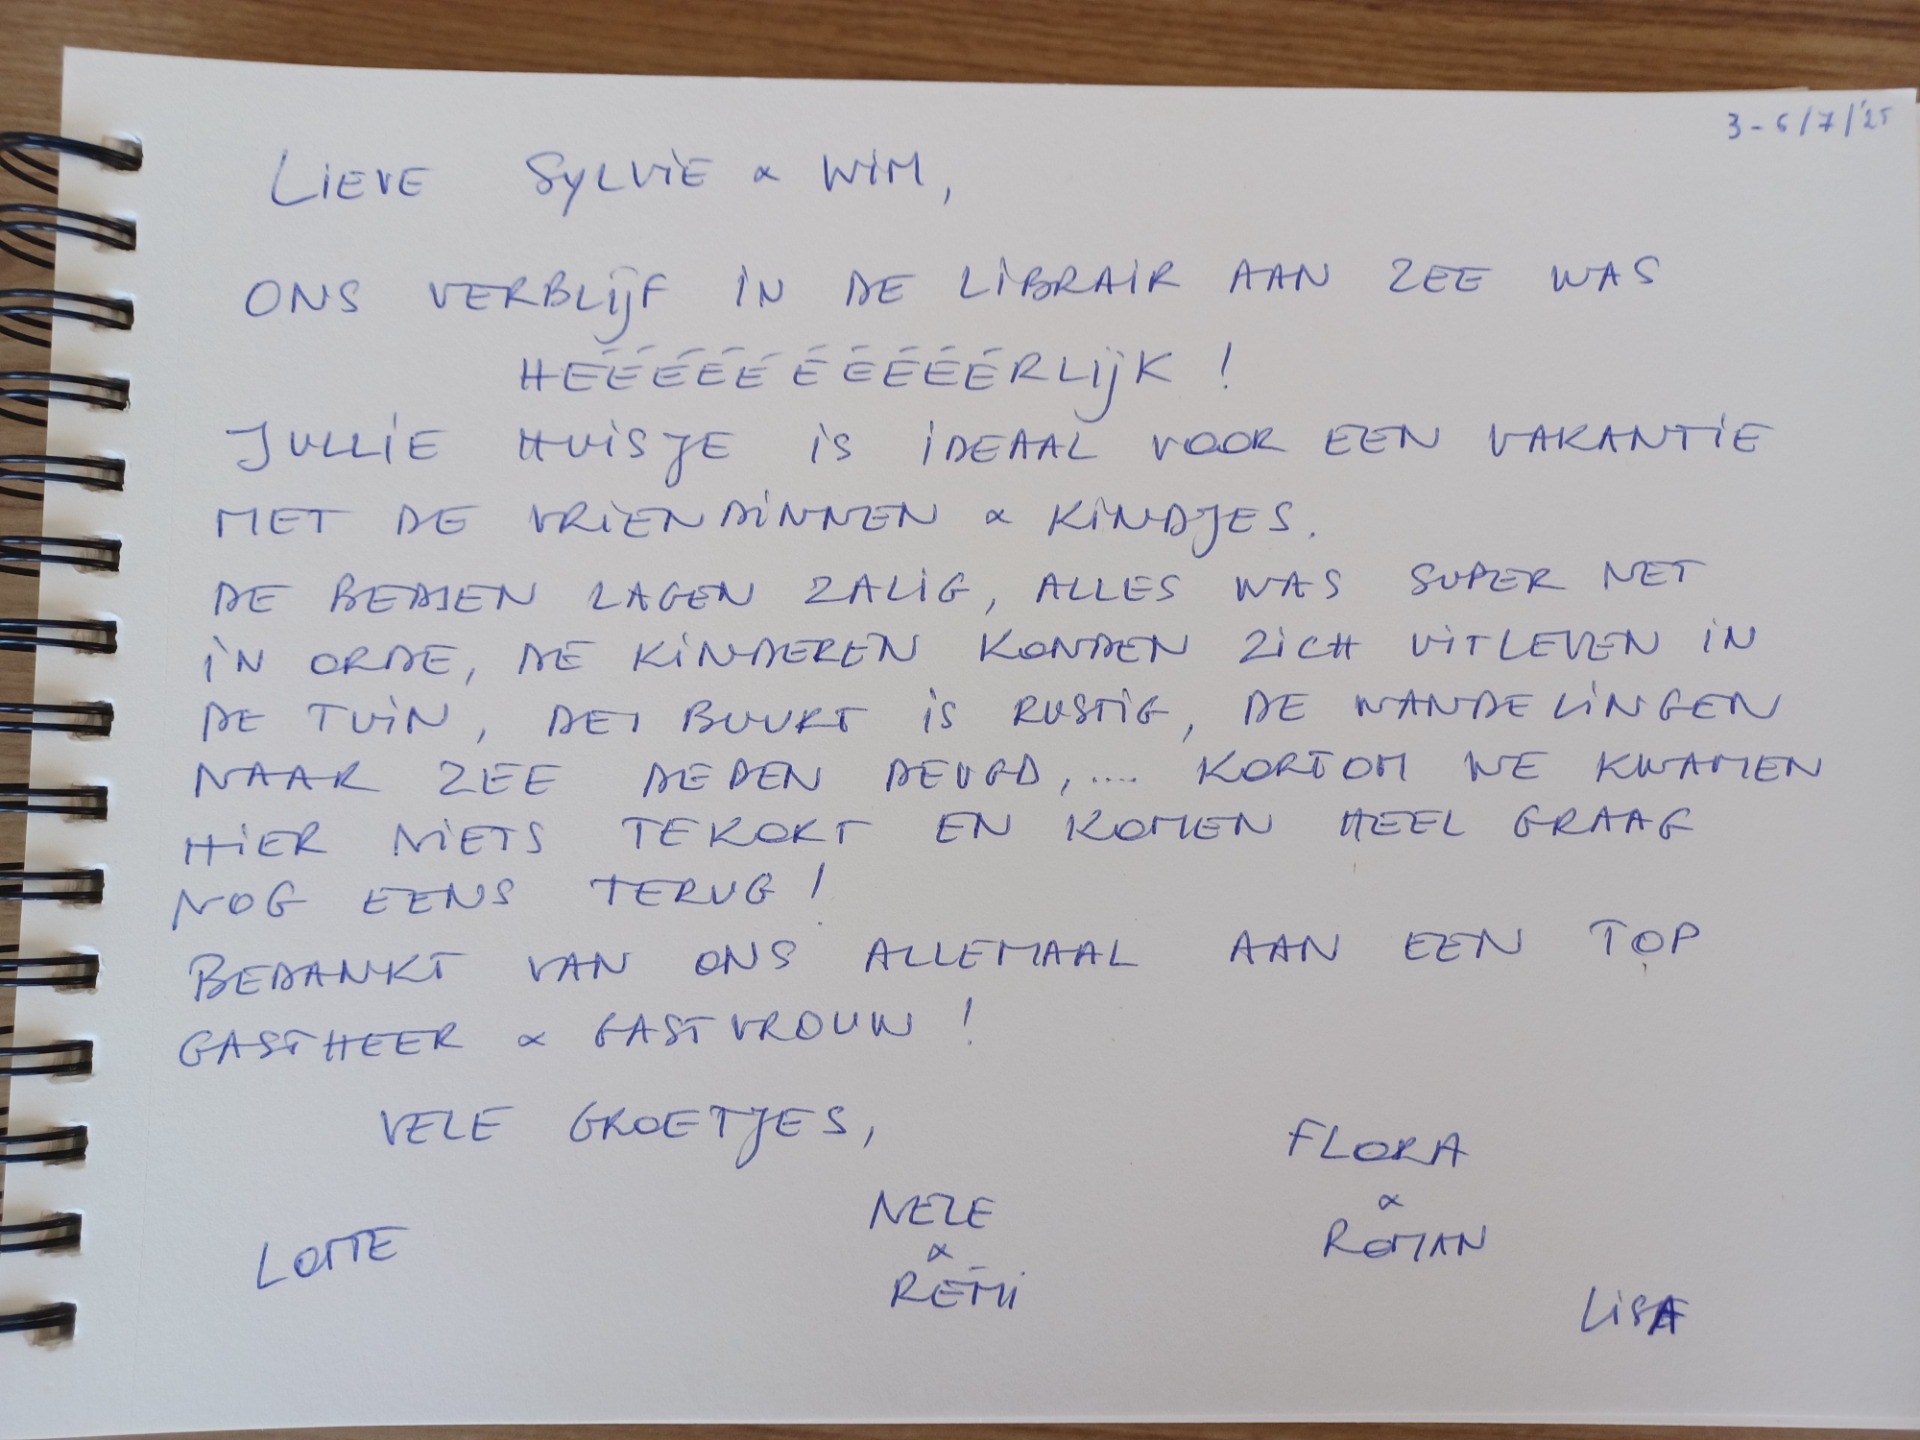 3-6/7/'25
LIEVE SYLVIE & WIM,
ONS VERBLIJF IN DE LIBRAIR AAN ZEE WAS
HEÉÉÉÉÉÉÉÉÉRLIJK!
JULLIE HUISJE IS IDEAAL VOOR EEN VAKANTIE
MET DE VRIENDINNEN & KINDJES.
DE BEDDEN LAGEN ZALIG, ALLES WAS SUPER NET
IN ORDE, DE KINDEREN KONDEN ZICH UITLEVEN IN
DE TUIN, DE BUURT IS RUSTIG, DE WANDELINGEN
NAAR ZEE DEDEN DEUGD, .... KORTOM WE KWAMEN
HIER NIETS TEKORT EN KOMEN HEEL GRAAG
NOG EENS TERUG!
BEDANKT VAN ONS ALLEMAAL AAN EEN TOP
GASTHEER & GASTVROUW!
VELE GROETJES,
FLORA
&
ROMAN
NELE
&
RÉMI
LOTTE
LISA